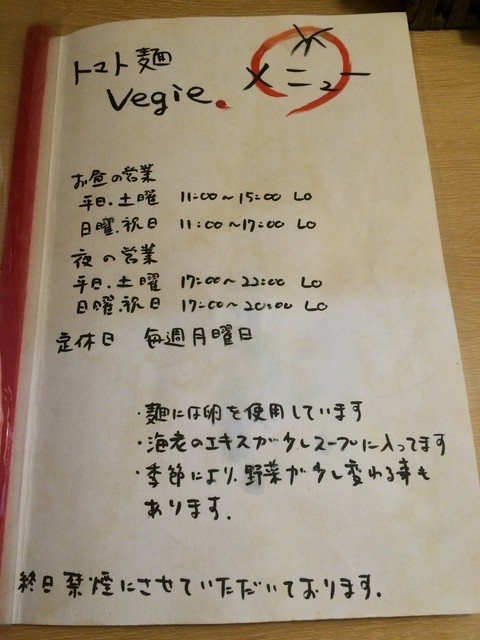 トマト麺
Vegie.
メニュー
お昼の営業
平日.土曜 11:00~15:00 LO
日曜.祝日 11:00~17:00 LO
夜の営業
平日.土曜 17:00~22:00 LO
日曜.祝日 17:00~20:00 LO
定休日 毎週月曜日
・麺には卵を使用しています
・海老のエキスが少しスープに入ってます
・季節により、野菜が少し変わる事も
あります.
終日禁煙にさせていただいております.